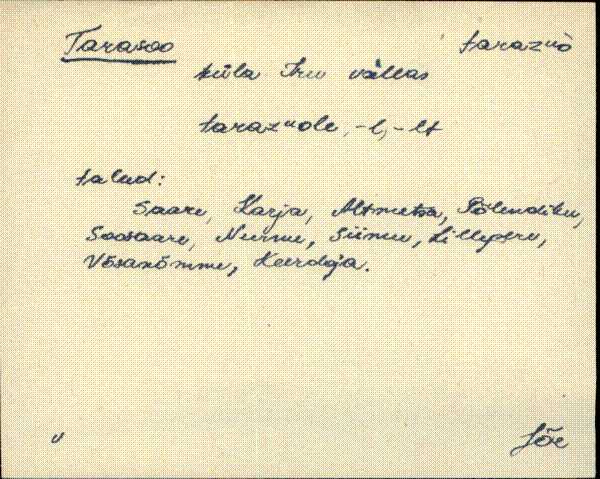 Tarasoo tarazuò
küla Iru vallas
tarazuole, -l, -lt
talud:
Saare, Karja, Altmetsa, Põlendiku,
Soosaare, Nurme, Siimu, Lillepere,
Võsanõmme, Keerdoja.
v Jõe